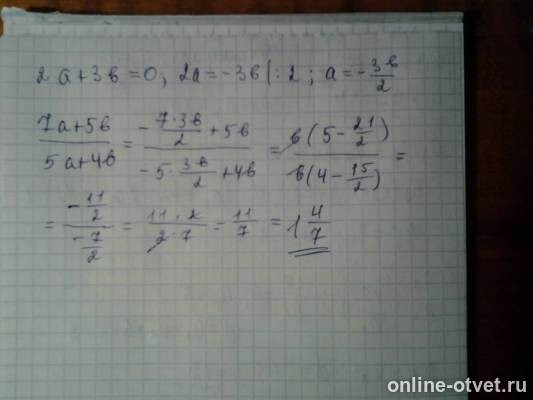 2a+3в=0; 2a=-3в |:2; a=-3в/2
(7a+5в)/(5a+4в) = (-7·3в/2+5в)/(-5·3в/2+4в) = в(5-21/2)/в(4-15/2) =
= (-11/2)/(-7/2) = 11·2/2·7 = 11/7 = 1 4/7
online-otvet.ru